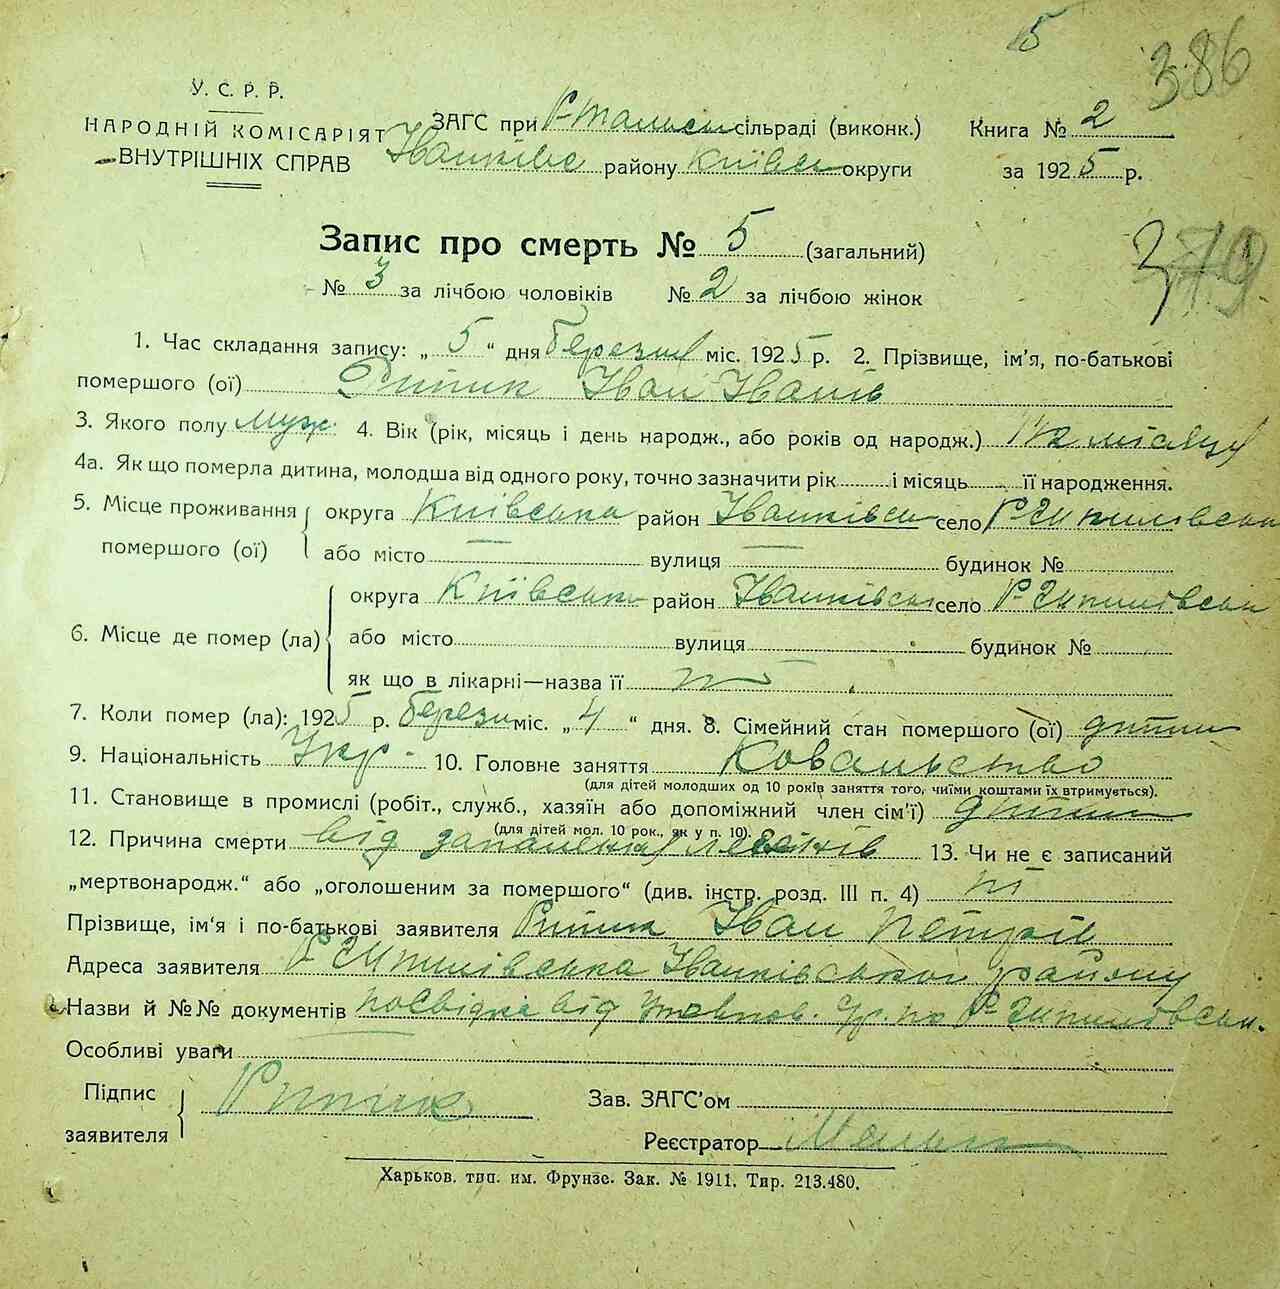 5
386
У. С. Р. Р.
НАРОДНІЙ КОМІСАРІЯТ
ВНУТРІШНІХ СПРАВ
ЗАГС при Р-Талиськ сільраді (виконк.)
Іванківс району Київськ округи
Книга № 2
за 1925 р.
379
Запис про смерть № 5 (загальний)
№ 3 за лічбою чоловіків № 2 за лічбою жінок
1. Час складання запису: „ 5 “ дня березня міс. 1925 р. 2. Прізвище, ім’я, по-батькові
помершого (ої) Ритик Іван Іванів
3. Якого полу муж. 4. Вік (рік, місяць і день народж., або років од народж.) місяця
4а. Як що померла дитина, молодша від одного року, точно зазначити рік і місяць її народження.
5. Місце проживання помершого (ої) округа Київська район Іванківськ село
або місто вулиця будинок №
6. Місце де помер (ла) округа Київська район Іванківськ село
або місто вулиця будинок №
як що в лікарні—назва її
7. Коли помер (ла): 1925 р. березня міс. „ 4 “ дня. 8. Сімейний стан помершого (ої) дитина
9. Національність Укр. 10. Головне заняття Ковальство
(для дітей молодших од 10 років заняття того, чиїми коштами їх втримується).
11. Становище в промислі (робіт., служб., хазяїн або допоміжний член сім’ї) дитина
(для дітей мол. 10 рок., як у п. 10).
12. Причина смерти від запалення легенів 13. Чи не є записаний
„мертвонародж.“ або „оголошеним за помершого“ (див. інстр. розд. III п. 4) ні
Прізвище, ім‘я і по-батькові заявителя Ритик Іван Петрів
Адреса заявителя Іванківського району
Назви й №№ документів посвідка від
Особливі уваги
Підпис заявителя Ритик
Зав. ЗАГС’ом
Реєстратор
Харьков. тип. им. Фрунзе. Зак. № 1911. Тир. 213.480.